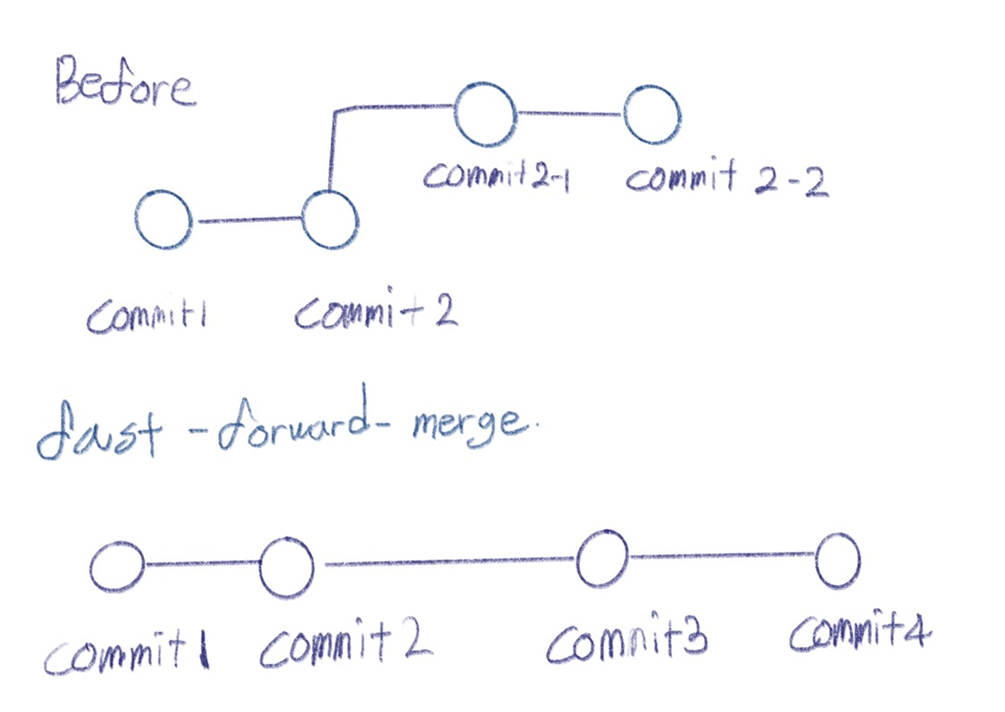 Before
commit2-1 commit 2-2
commit1 commit 2
fast-forward-merge.
commit1 commit2 commit3 commit4